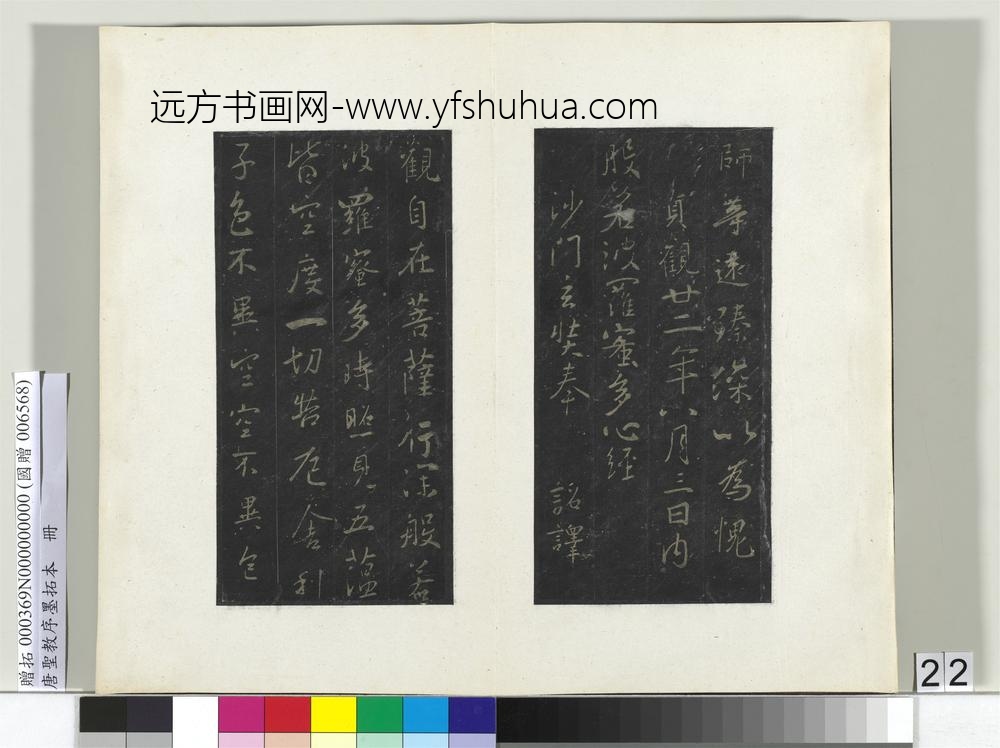 远方书画网-www.yfshuhua.com
師等遠臻深以為愧
貞觀廿二年八月三日內
般若波羅蜜多心經
沙門玄奘奉 詔譯
觀自在菩薩行深般若
波羅蜜多時照見五蘊
皆空度一切苦厄舍利
子色不異空空不異色
贈拓 000369N000000000 (國贈 006568)
唐聖教序墨拓本 冊
22